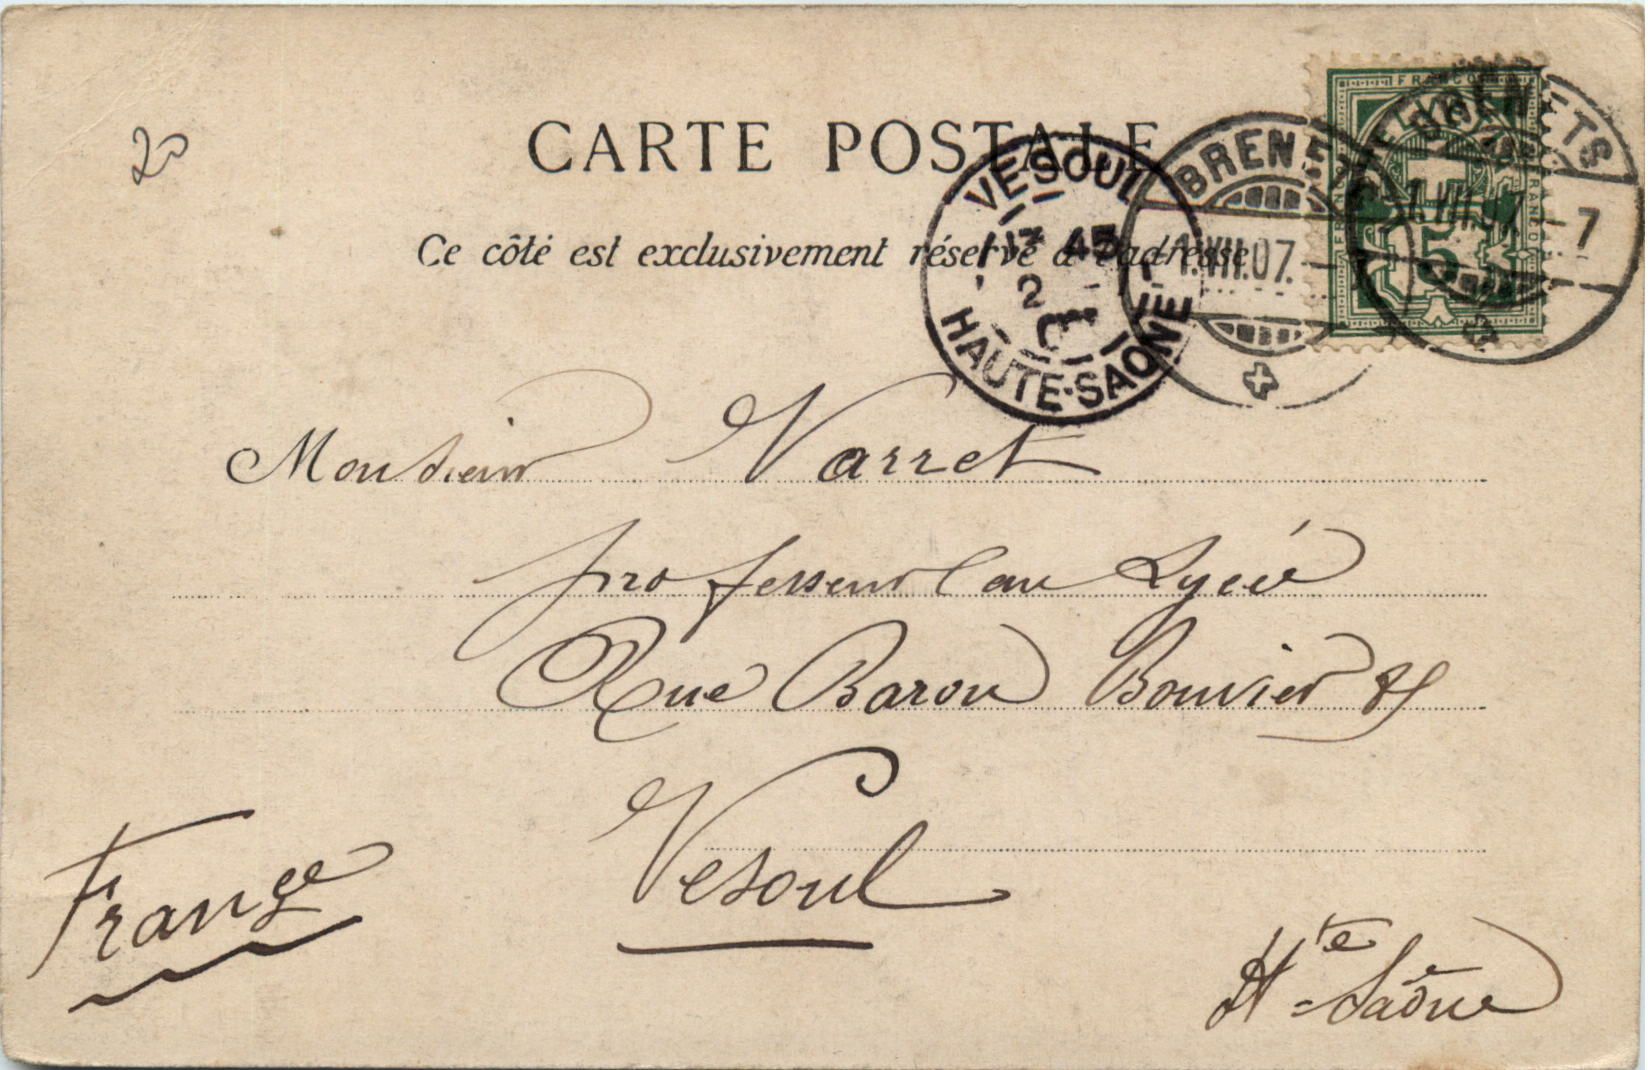 20
CARTE POSTALE
Ce côté est exclusivement réservé à l'adresse
VESOUL
13 45
2
HAUTE-SAONE
BRENETS
1.VII.07.
FRANCO
BRENETS
1.VII.07.-7
5
Monsieur Varret
professeur au Lycée
Rue Baron Bouvier
Vesoul
France
Hte-Saône